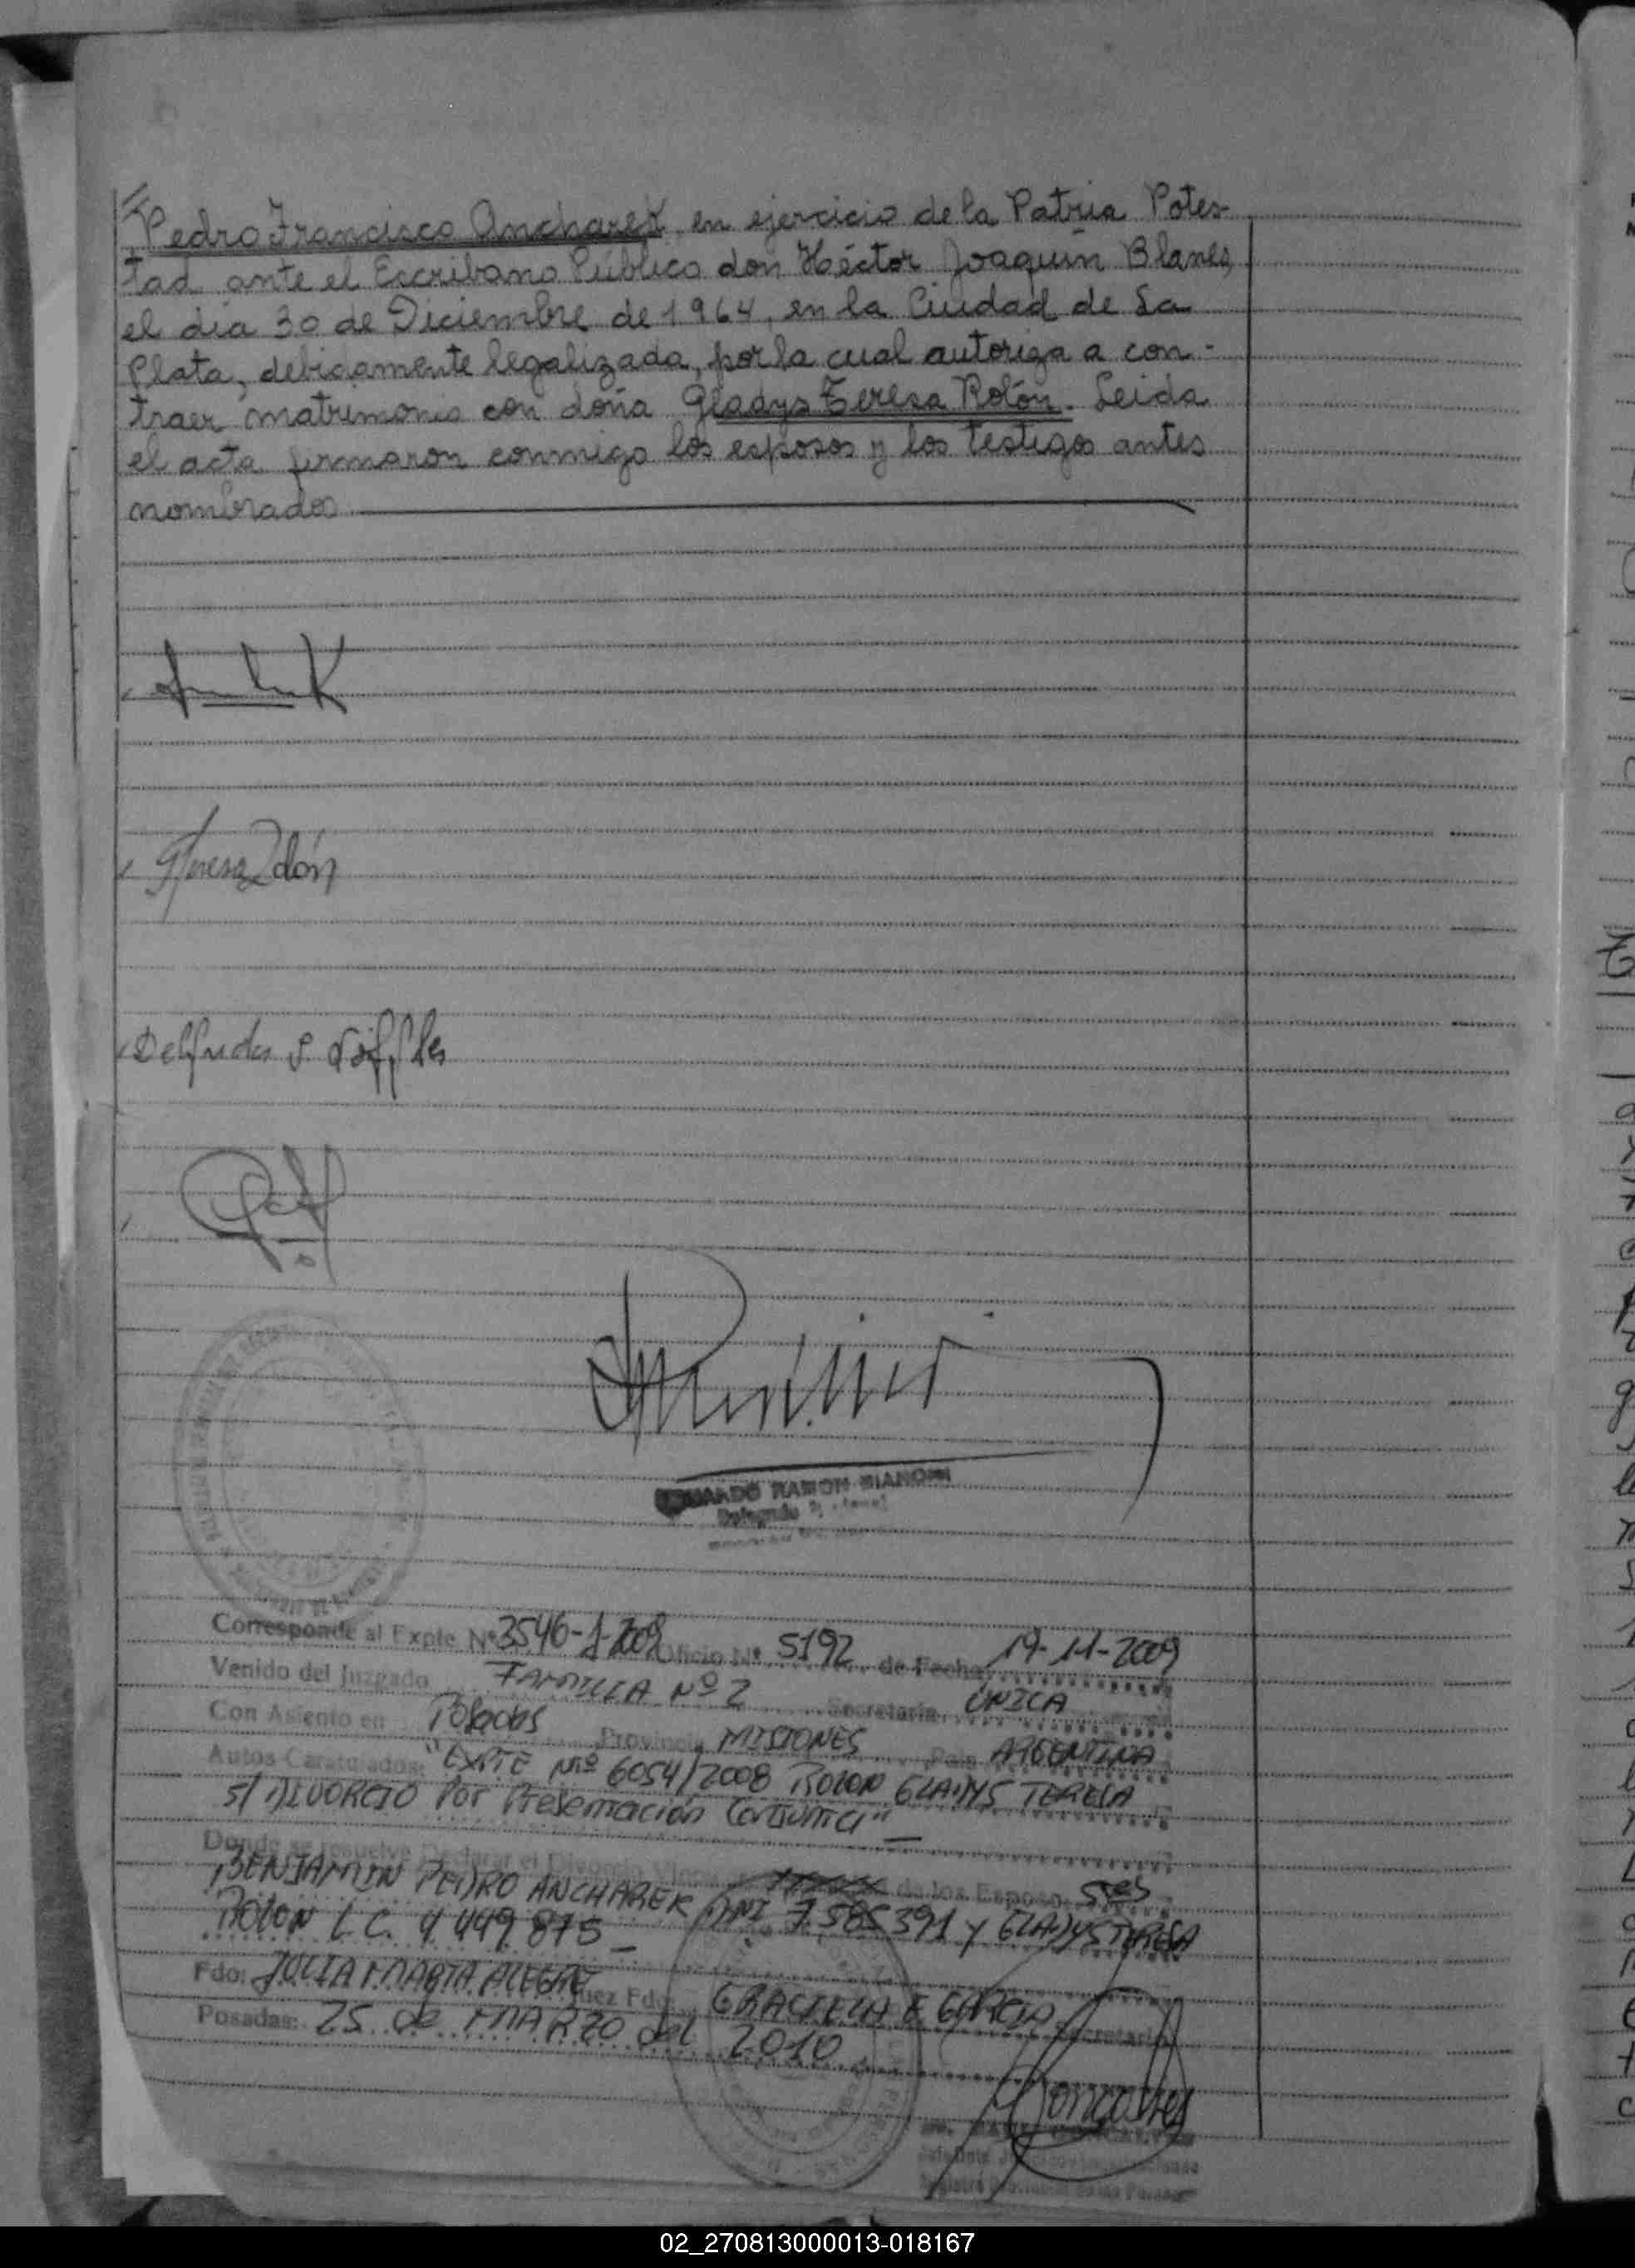 Pedro Francisco Ancharek, en ejercicio de la Patria Potes-
tad ante el Escribano Público don Héctor Joaquín Blanes,
el dia 30 de Diciembre de 1964, en la Ciudad de La
Plata, debidamente legalizada, por la cual autoriza a con-
traer matrimonio con doña Gladys Teresa Rolón. Leida
el acta firmaron conmigo los esposos y los testigos antes
nombrados
RAMON BIANCHI
Delegado
Corresponde al Expte Nº 3546-J-2009 Oficio Nº 5192 de Fecha 19-11-2009
Venido del Juzgado FAMILIA Nº 2 Secretaria ÚNICA
Con Asiento en Posadas Provincia MISIONES Pais ARGENTINA
Autos Caratulados: "EXPTE Nº 6054/2008 ROLON GLADYS TERESA
S/ DIVORCIO Por Presentación Conjunta"
Donde se resuelve Declarar el Divorcio de los Esposos: Sres
BENJAMIN PEDRO ANCHAREK DNI 7.585391 y GLADYS TERESA
ROLON L.C. 4 449 875
Fdo: JULIA MARTA ALEGRE Juez Fdo: GRACIELA E GARCIA Secretaria
Posadas: 25 de MARZO del 2010
02_270813000013-018167